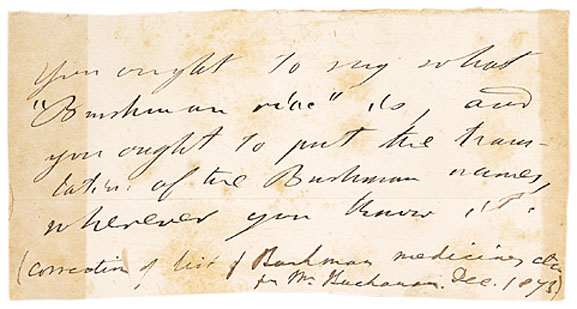 you ought to say what
"Bushman rice" is, and
you ought to put the trans-
lation of the Bushman names,
wherever you know it.
(correction of list of Bushman medicines etc
for Mr. Buchanan. Dec. 1873)